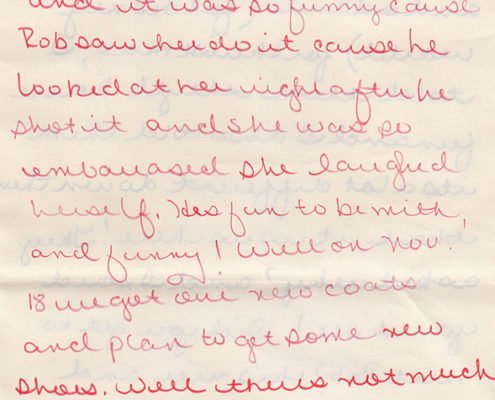 and it was so funny cause
Rob saw her do it cause he
looked at her right after he
shot it and she was so
embarrased she laughed
herself. Hes fun to be with,
and funny! Well on Nov.
18 we get our new coats
and plan to get some new
shoes. Well theres not much